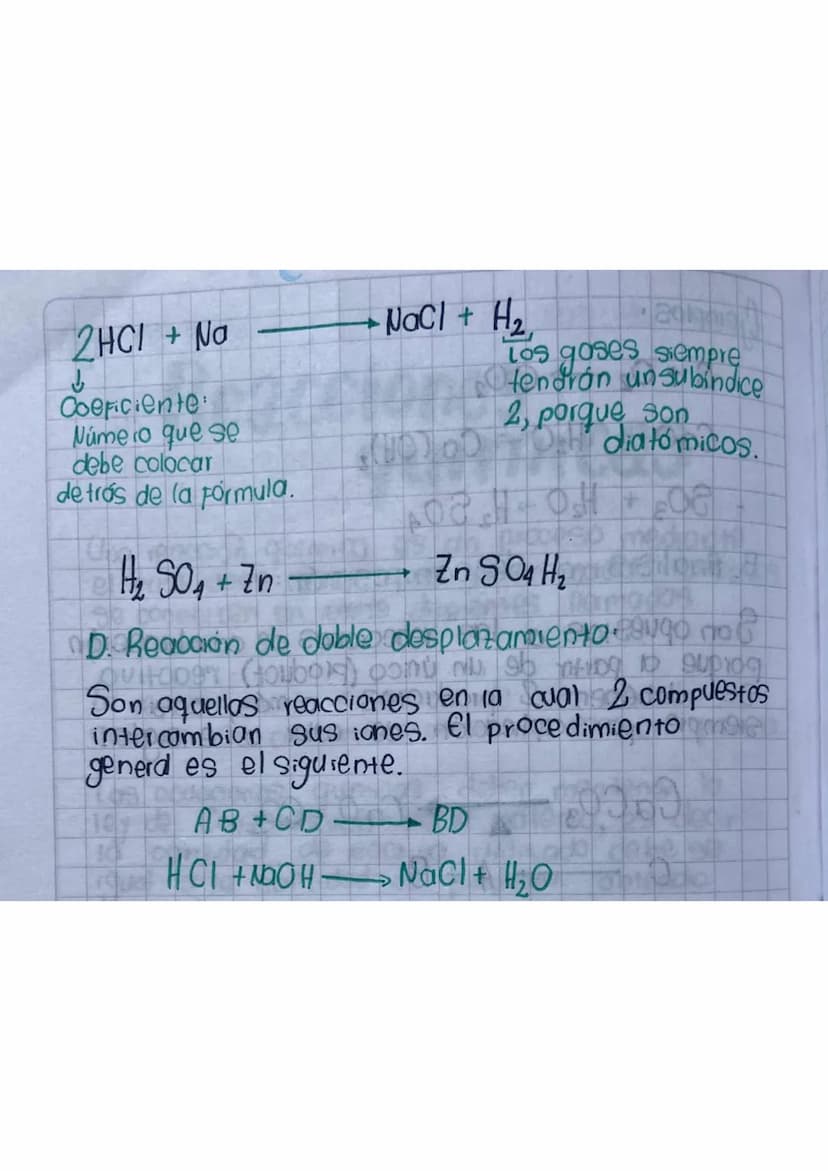 2HCl + Na ⟶ NaCl + H₂
↓
Coeficiente:
Número que se
debe colocar
detrás de la fórmula.
Los gases siempre
tendrán un subíndice
2, porque son
diatómicos.
H₂ SO₄ + Zn ⟶ Zn SO₄ H₂
D. Reacción de doble desplazamiento.
Son aquellas reacciones en la cual 2 compuestos
intercambian sus iones. El procedimiento
general es el siguiente.
AB + CD ⟶ BD
HCl + NaOH ⟶ NaCl + H₂O